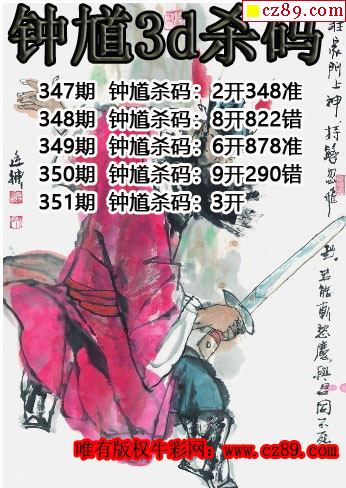 cz89.com
钟馗3d杀码
347期 钟馗杀码：2开348准
348期 钟馗杀码：8开822错
349期 钟馗杀码：6开878准
350期 钟馗杀码：9开290错
351期 钟馗杀码：3开
唯有版权牛彩网：www.cz89.com